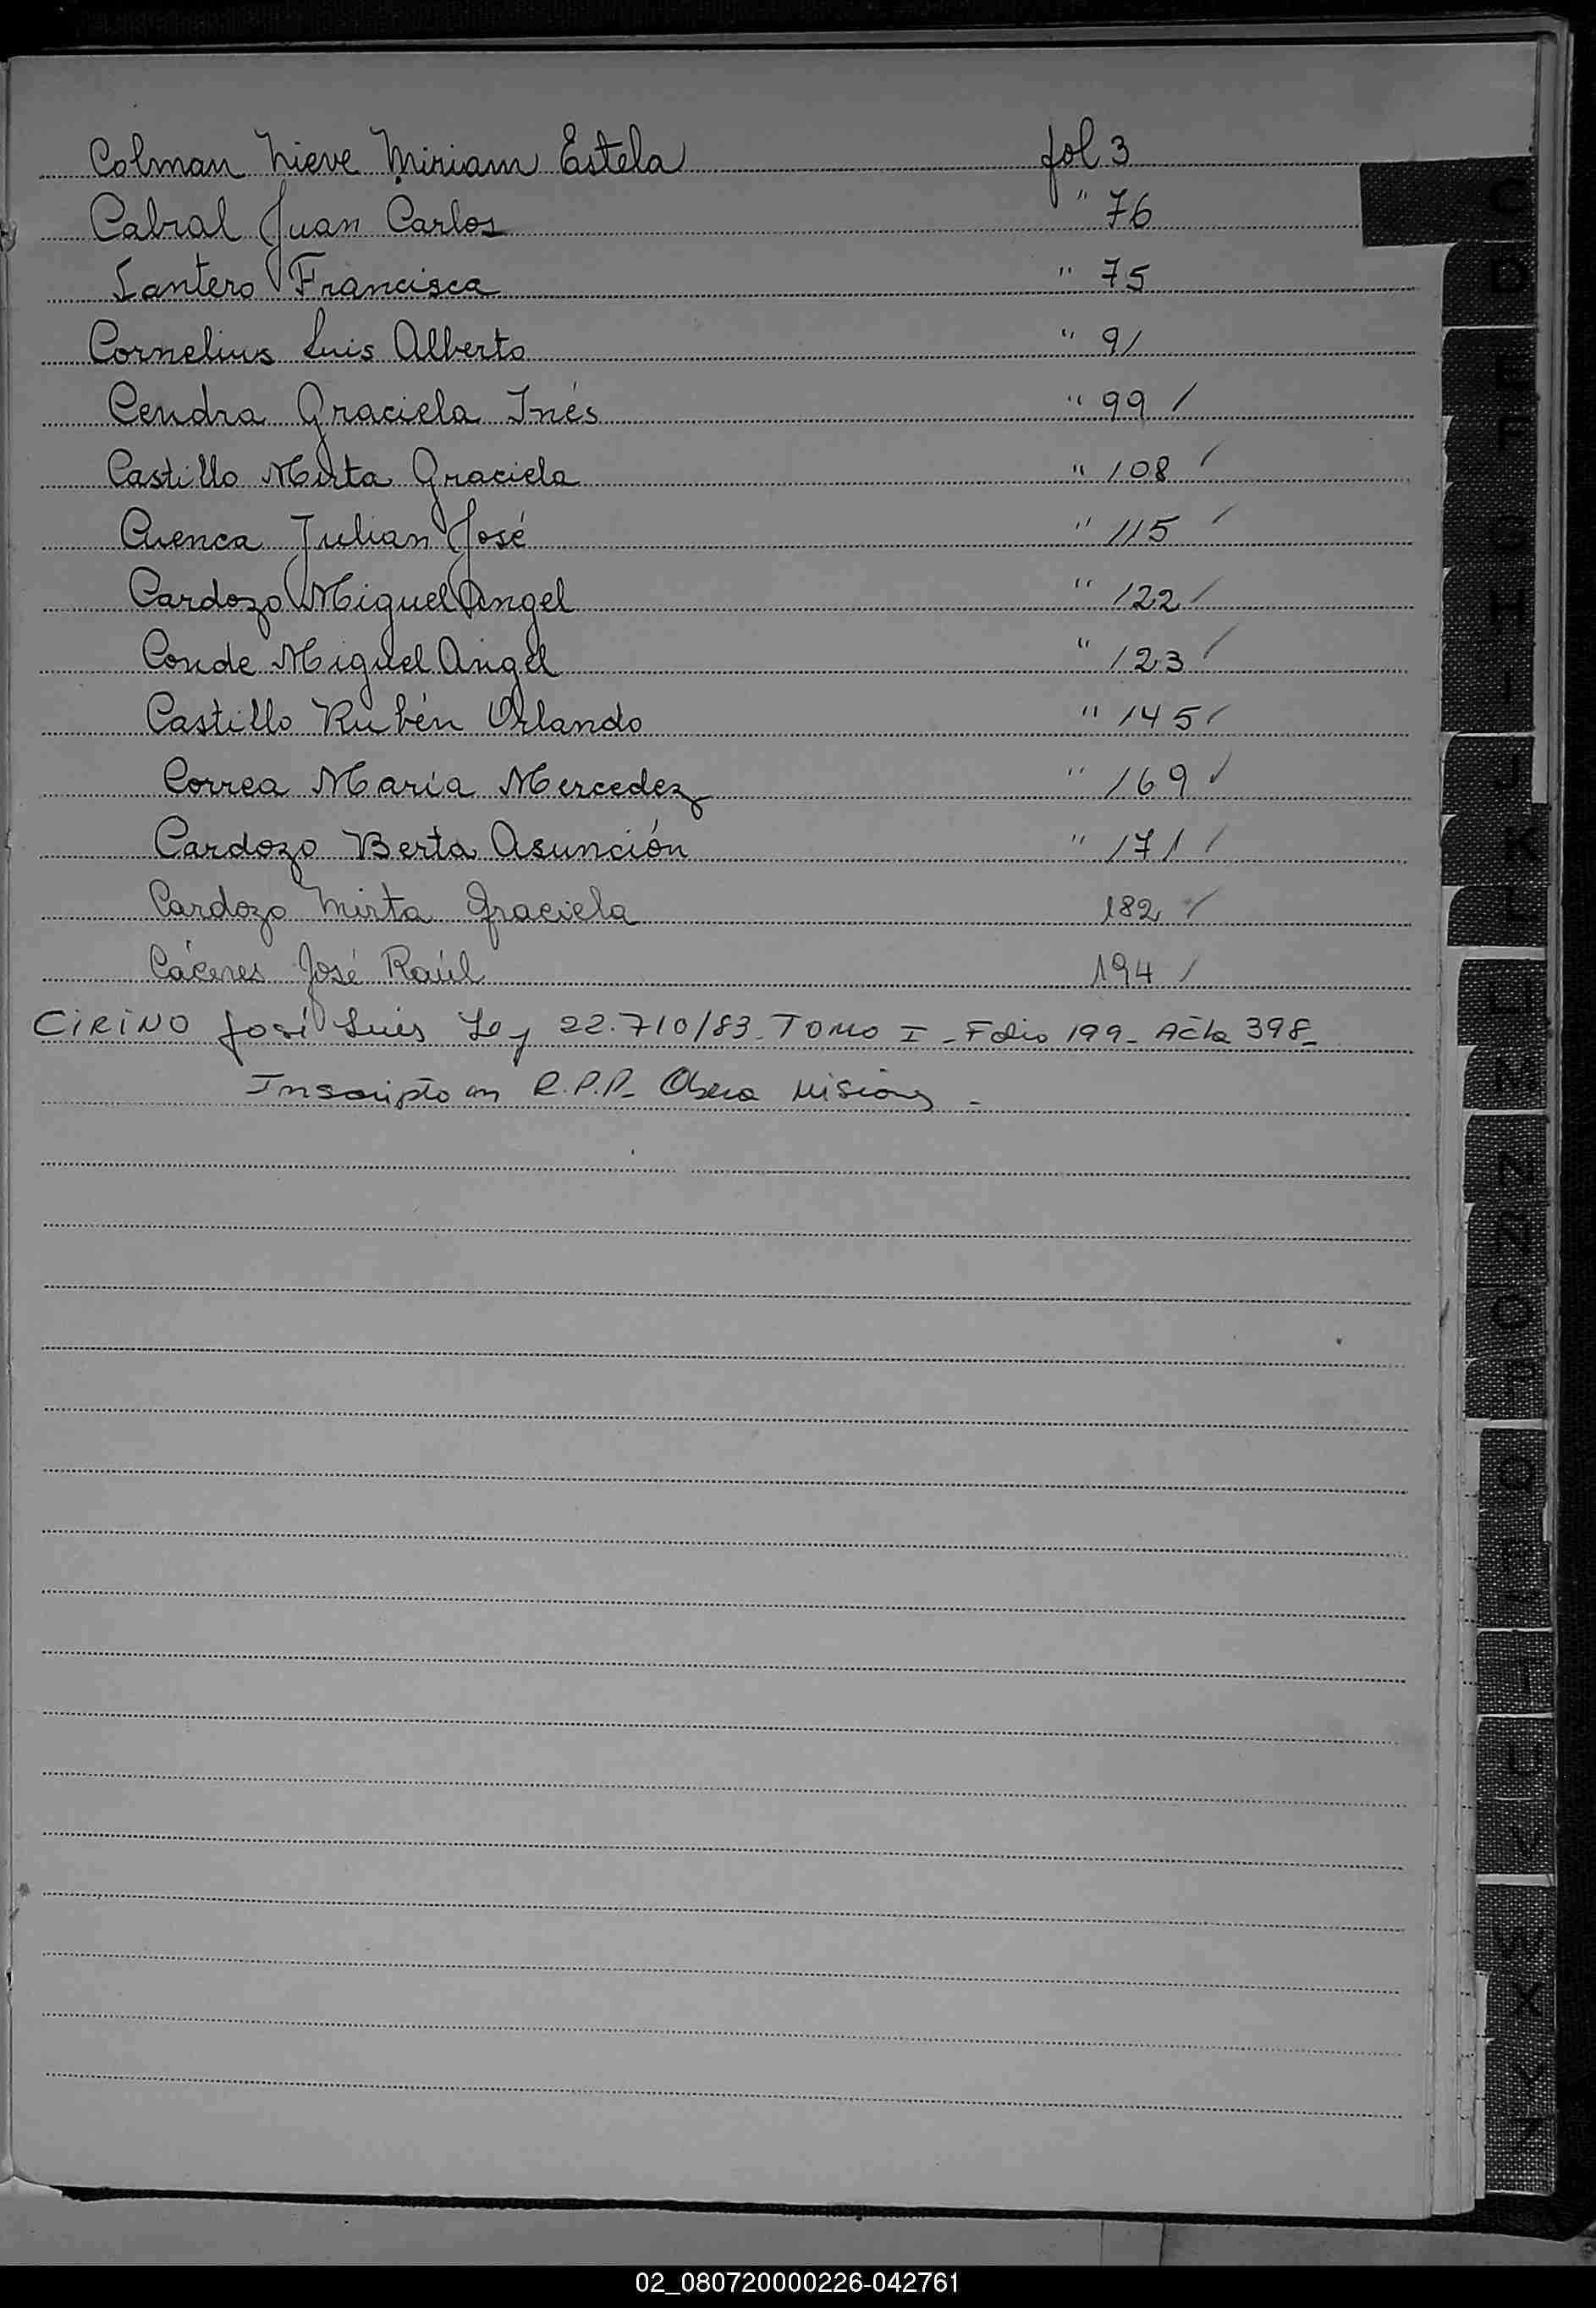 Colman Nieve Miriam Estela fol 3
Cabral Juan Carlos " 76
Santero Francisca " 75
Cornelius Luis Alberto " 91
Cendra Graciela Inés " 99 /
Castillo Mirta Graciela " 108 /
Cuenca Julian José " 115 /
Cardozo Miguel Angel " 122 /
Conde Miguel Angel " 123 /
Castillo Rubén Orlando " 145 /
Correa María Mercedez " 169 /
Cardozo Berta Asunción " 171 /
Cardozo Mirta Graciela 182 /
Cáceres José Raúl 194 /
CIRINO José Luis Ley 22.710/83 - TOMO I - Folio 199 - Acta 398 -
Inscripto en R.P.P. - Obera Misiones -
C
D
E
F
G
H
I
J
K
L
LL
M
N
Ñ
O
P
Q
R
S
T
U
V
W
X
Y
Z
02_080720000226-042761